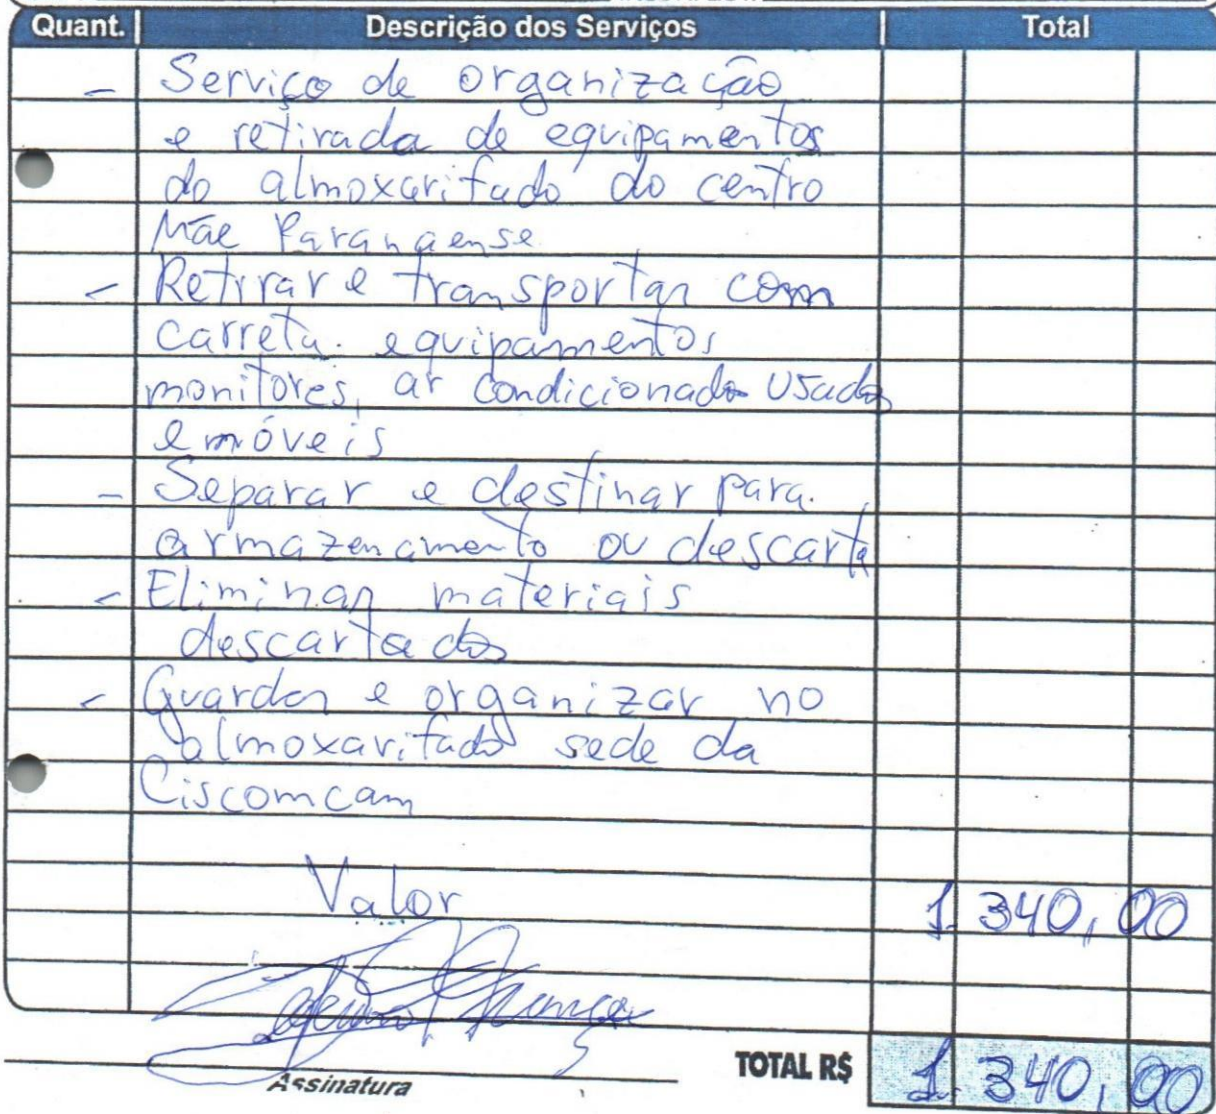 Quant. Descrição dos Serviços Total
- Serviço de organização
e retirada de equipamentos
do almoxarifado do centro
Mãe Paranaense
- Retirar e transportar com
carreta. equipamentos
monitores, ar condicionado usados
e móveis
- Separar e destinar para
armazenamento ou descarte
- Eliminar materiais
descartados
- Guardar e organizar no
almoxarifado sede da
Ciscomcam
Valor 1.340,00
Assinatura
TOTAL R$ 1.340,00